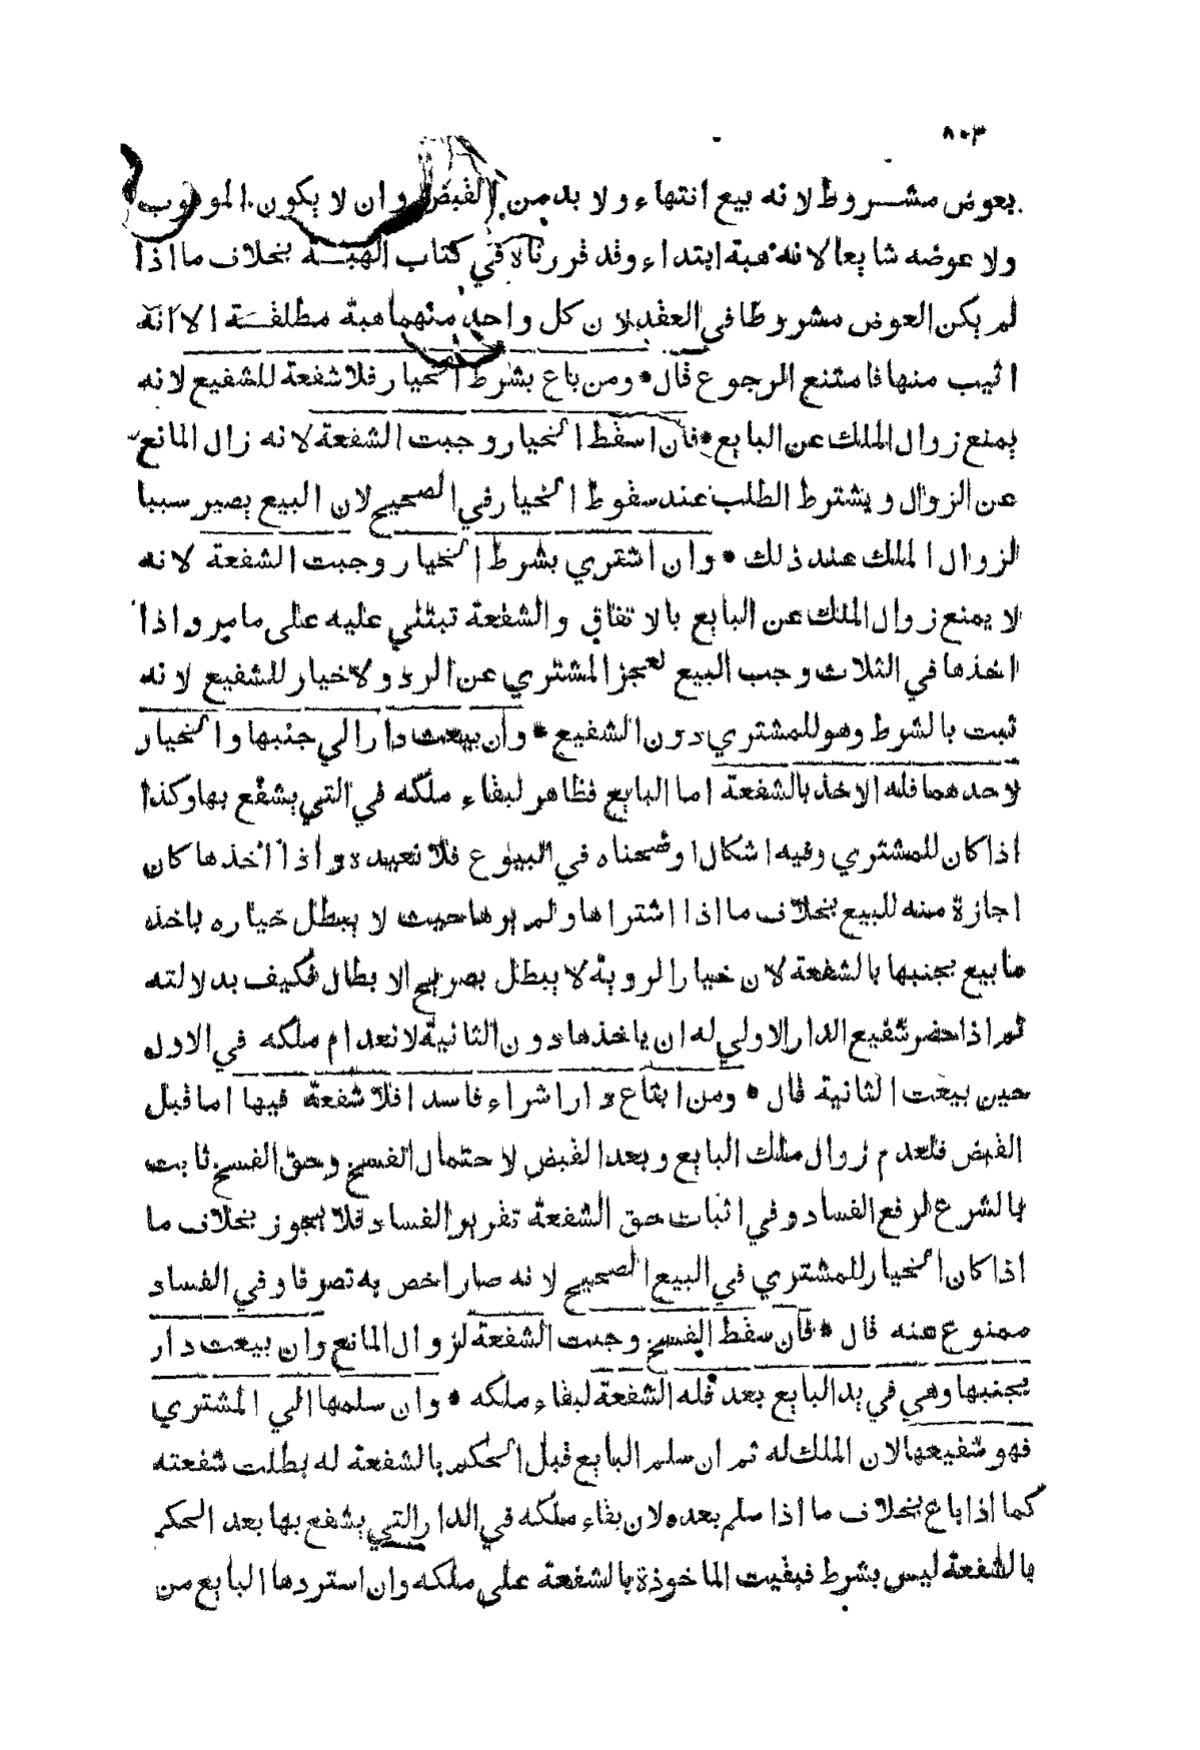 ٨٠٣
بعوض مشروط لانه بيع انتهاء ولا بد من القبض وان لا يكون الموهوب
ولا عوضه شايعا لانه هبة ابتداء وقد قررناه في كتاب الهبة بخلاف ما اذا
لم يكن العوض مشروطا في العقد لان كل واحد منهما هبة مطلقة الا انه
اثيب منها فامتنع الرجوع قال * ومن باع بشرط الخيار فلا شفعة للشفيع لانه
يمنع زوال الملك عن البايع * فان اسقط الخيار وجبت الشفعة لانه زال المانع
عن الزوال ويشترط الطلب عند سقوط الخيار في الصحيح لان البيع يصير سببا
لزوال الملك عند ذلك * وان اشتري بشرط الخيار وجبت الشفعة لانه
لا يمنع زوال الملك عن البايع بالاتفاق والشفعة تبتني عليه على ما مر واذا
اخذها في الثلاث وجب البيع لعجز المشتري عن الرد ولا خيار للشفيع لانه
ثبت بالشرط وهو للمشتري دون الشفيع * وان بيعت دار الي جنبها والخيار
لاحدهما فله الاخذ بالشفعة اما البايع فظاهر لبقاء ملكه في التي يشفع بها وكذا
اذا كان للمشتري وفيه اشكال اوضحناه في البيوع فلا نعيده واذا اخذها كان
اجازة منه للبيع بخلاف ما اذا اشتراها ولم يرها حيث لا يبطل خياره باخذ
ما بيع بجنبها بالشفعة لان خيار الروية لا يبطل بصريح الابطال فكيف بدلالته
ثم اذا حضر شفيع الدار الاولي له ان ياخذها دون الثانية لانعدام ملكه في الاولى
حين بيعت الثانية قال * ومن ابتاع دارا شراء فاسدا فلا شفعة فيها اما قبل
القبض فلعدم زوال ملك البايع وبعد القبض لاحتمال الفسخ وحق الفسخ ثابت
بالشرع لرفع الفساد وفي اثبات حق الشفعة تقرير الفساد فلا يجوز بخلاف ما
اذا كان الخيار للمشتري في البيع الصحيح لانه صار اخص به تصرفا وفي الفساد
ممنوع عنه قال * فان سقط الفسخ وجبت الشفعة لزوال المانع وان بيعت دار
بجنبها وهي في يد البايع بعد فله الشفعة لبقاء ملكه * وان سلمها الي المشتري
فهو شفيعها لان الملك له ثم ان سلم البايع قبل الحكم بالشفعة له بطلت شفعته
كما اذا باع بخلاف ما اذا سلم بعده لان بقاء ملكه في الدار التي يشفع بها بعد الحكم
بالشفعة ليس بشرط فبقيت الماخوذة بالشفعة على ملكه وان استردها البايع من